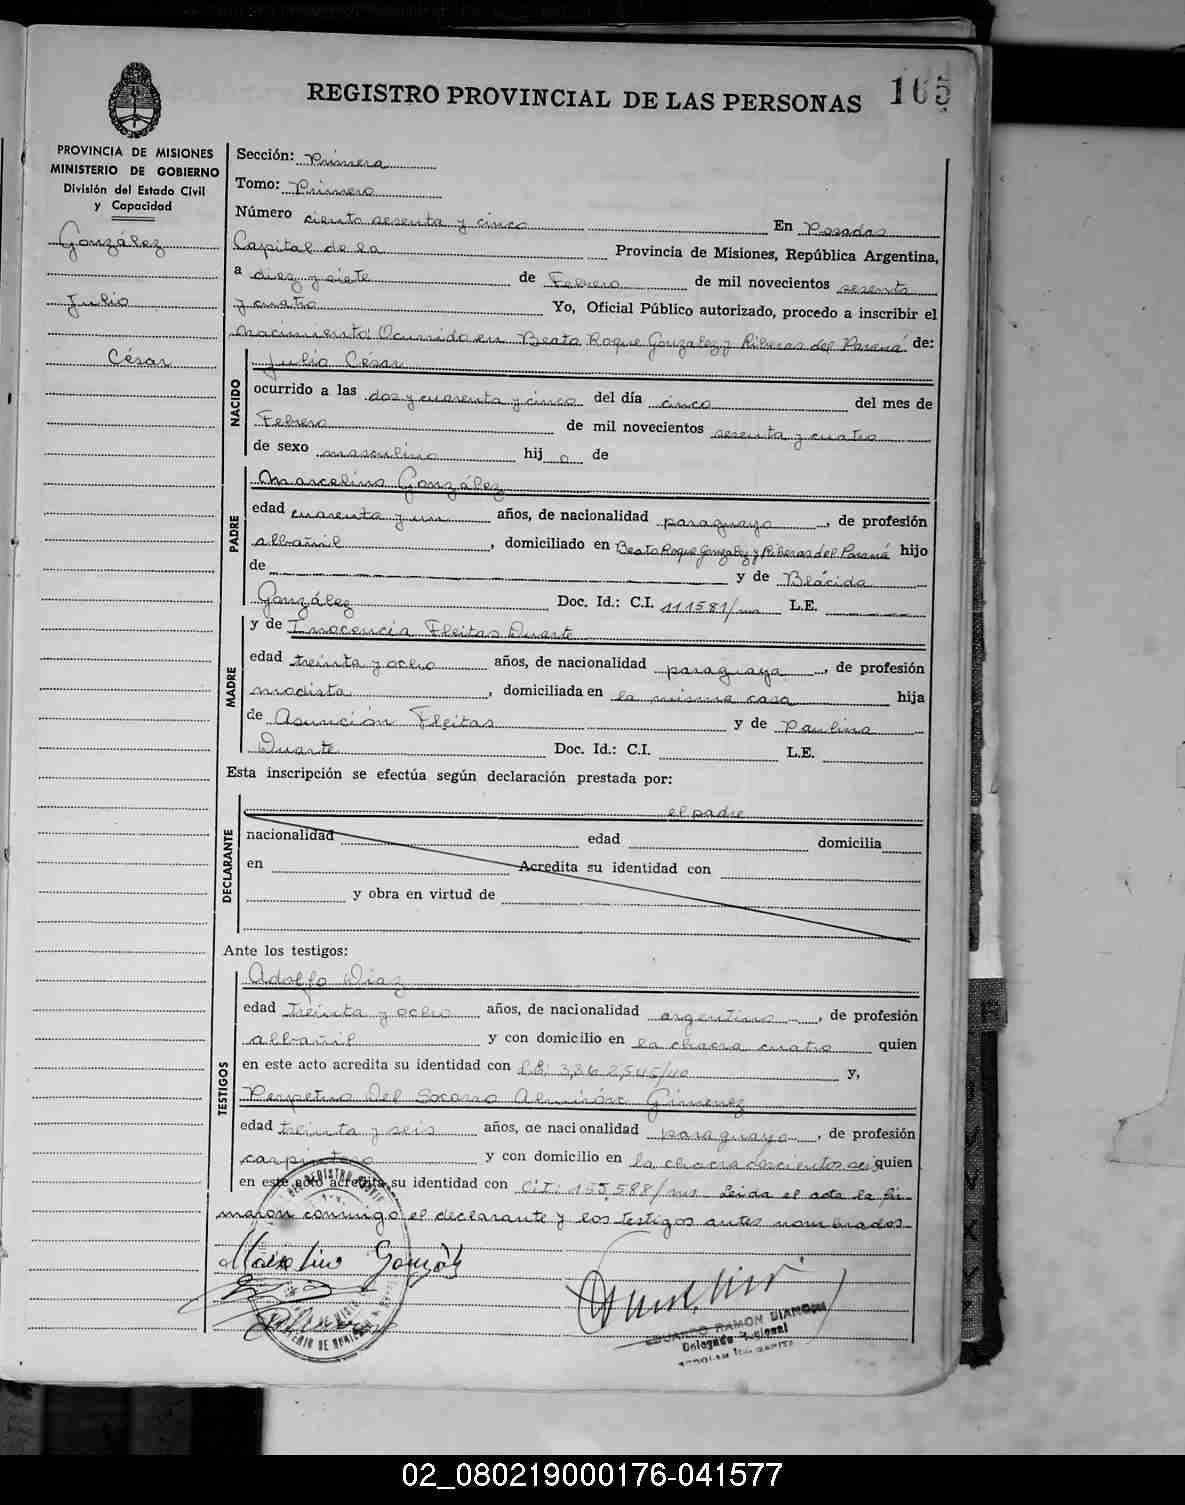 REGISTRO PROVINCIAL DE LAS PERSONAS 165
PROVINCIA DE MISIONES
MINISTERIO DE GOBIERNO
División del Estado Civil
y Capacidad
González
Julio
César
Sección: Primera
Tomo: Primero
Número ciento sesenta y cinco En Posadas
Capital de la Provincia de Misiones, República Argentina,
a diez y siete de Febrero de mil novecientos sesenta
y cuatro Yo, Oficial Público autorizado, procedo a inscribir el
nacimiento: Ocurrido en Beato Roque Gonzalez y Riberas del Paraná de:
NACIDO
Julio César
ocurrido a las dos y cuarenta y cinco del día cinco del mes de
Febrero de mil novecientos sesenta y cuatro
de sexo masculino hij o de
PADRE
Marcelino González
edad cuarenta y un años, de nacionalidad paraguaya, de profesión
albañil, domiciliado en Beato Roque Gonzalez y Riberas del Paraná hijo
de y de Blácida
González Doc. Id.: C.I. 111581/ms L.E.
MADRE
y de Inocencia Fleitas Duarte
edad treinta y ocho años, de nacionalidad paraguaya, de profesión
modista, domiciliada en la misma casa hija
de Asunción Fleitas y de Paulina
Duarte Doc. Id.: C.I. L.E.
Esta inscripción se efectúa según declaración prestada por:
DECLARANTE
el padre
nacionalidad edad domicilia
en Acredita su identidad con
y obra en virtud de
Ante los testigos:
TESTIGOS
Adolfo Diaz
edad treinta y ocho años, de nacionalidad argentino, de profesión
albañil y con domicilio en la chacra cuatro quien
en este acto acredita su identidad con y,
Perpetuo Del Socorro Almirón Gimenez
edad treinta y seis años, de nacionalidad paraguayo, de profesión
carpintero y con domicilio en la chacra doscientos seis quien
en este acto acredita su identidad con C.I. 155,588/ms Leida el acta la fir-
maron conmigo el declarante y los testigos antes nombrados
Marcelino González
EDUARDO RAMON BIANCHI
Delegado
02_080219000176-041577